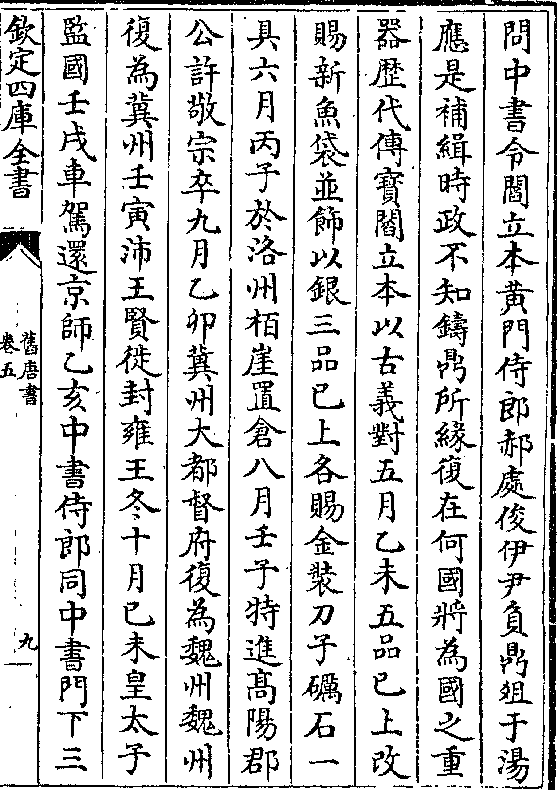 問中書令閻立本黄門侍郎郝處俊伊尹負鼎俎于湯
應是補緝時政不知鑄鼎所緣復在何國將為國之重
器歴代傳寳閻立本以古義對五月乙未五品已上改
賜新魚袋並飾以銀三品已上各賜金裝刀子礪石一
具六月丙子於洛州栢崖置倉八月壬子特進髙陽郡
公許敬宗卒九月乙卯冀州大都督府復為魏州魏州
復為冀州壬寅沛王賢徙封雍王冬十月已未皇太子
監國壬戌車駕還京師乙亥中書侍郎同中書門下三
欽定四庫全書
舊唐書
卷五
九